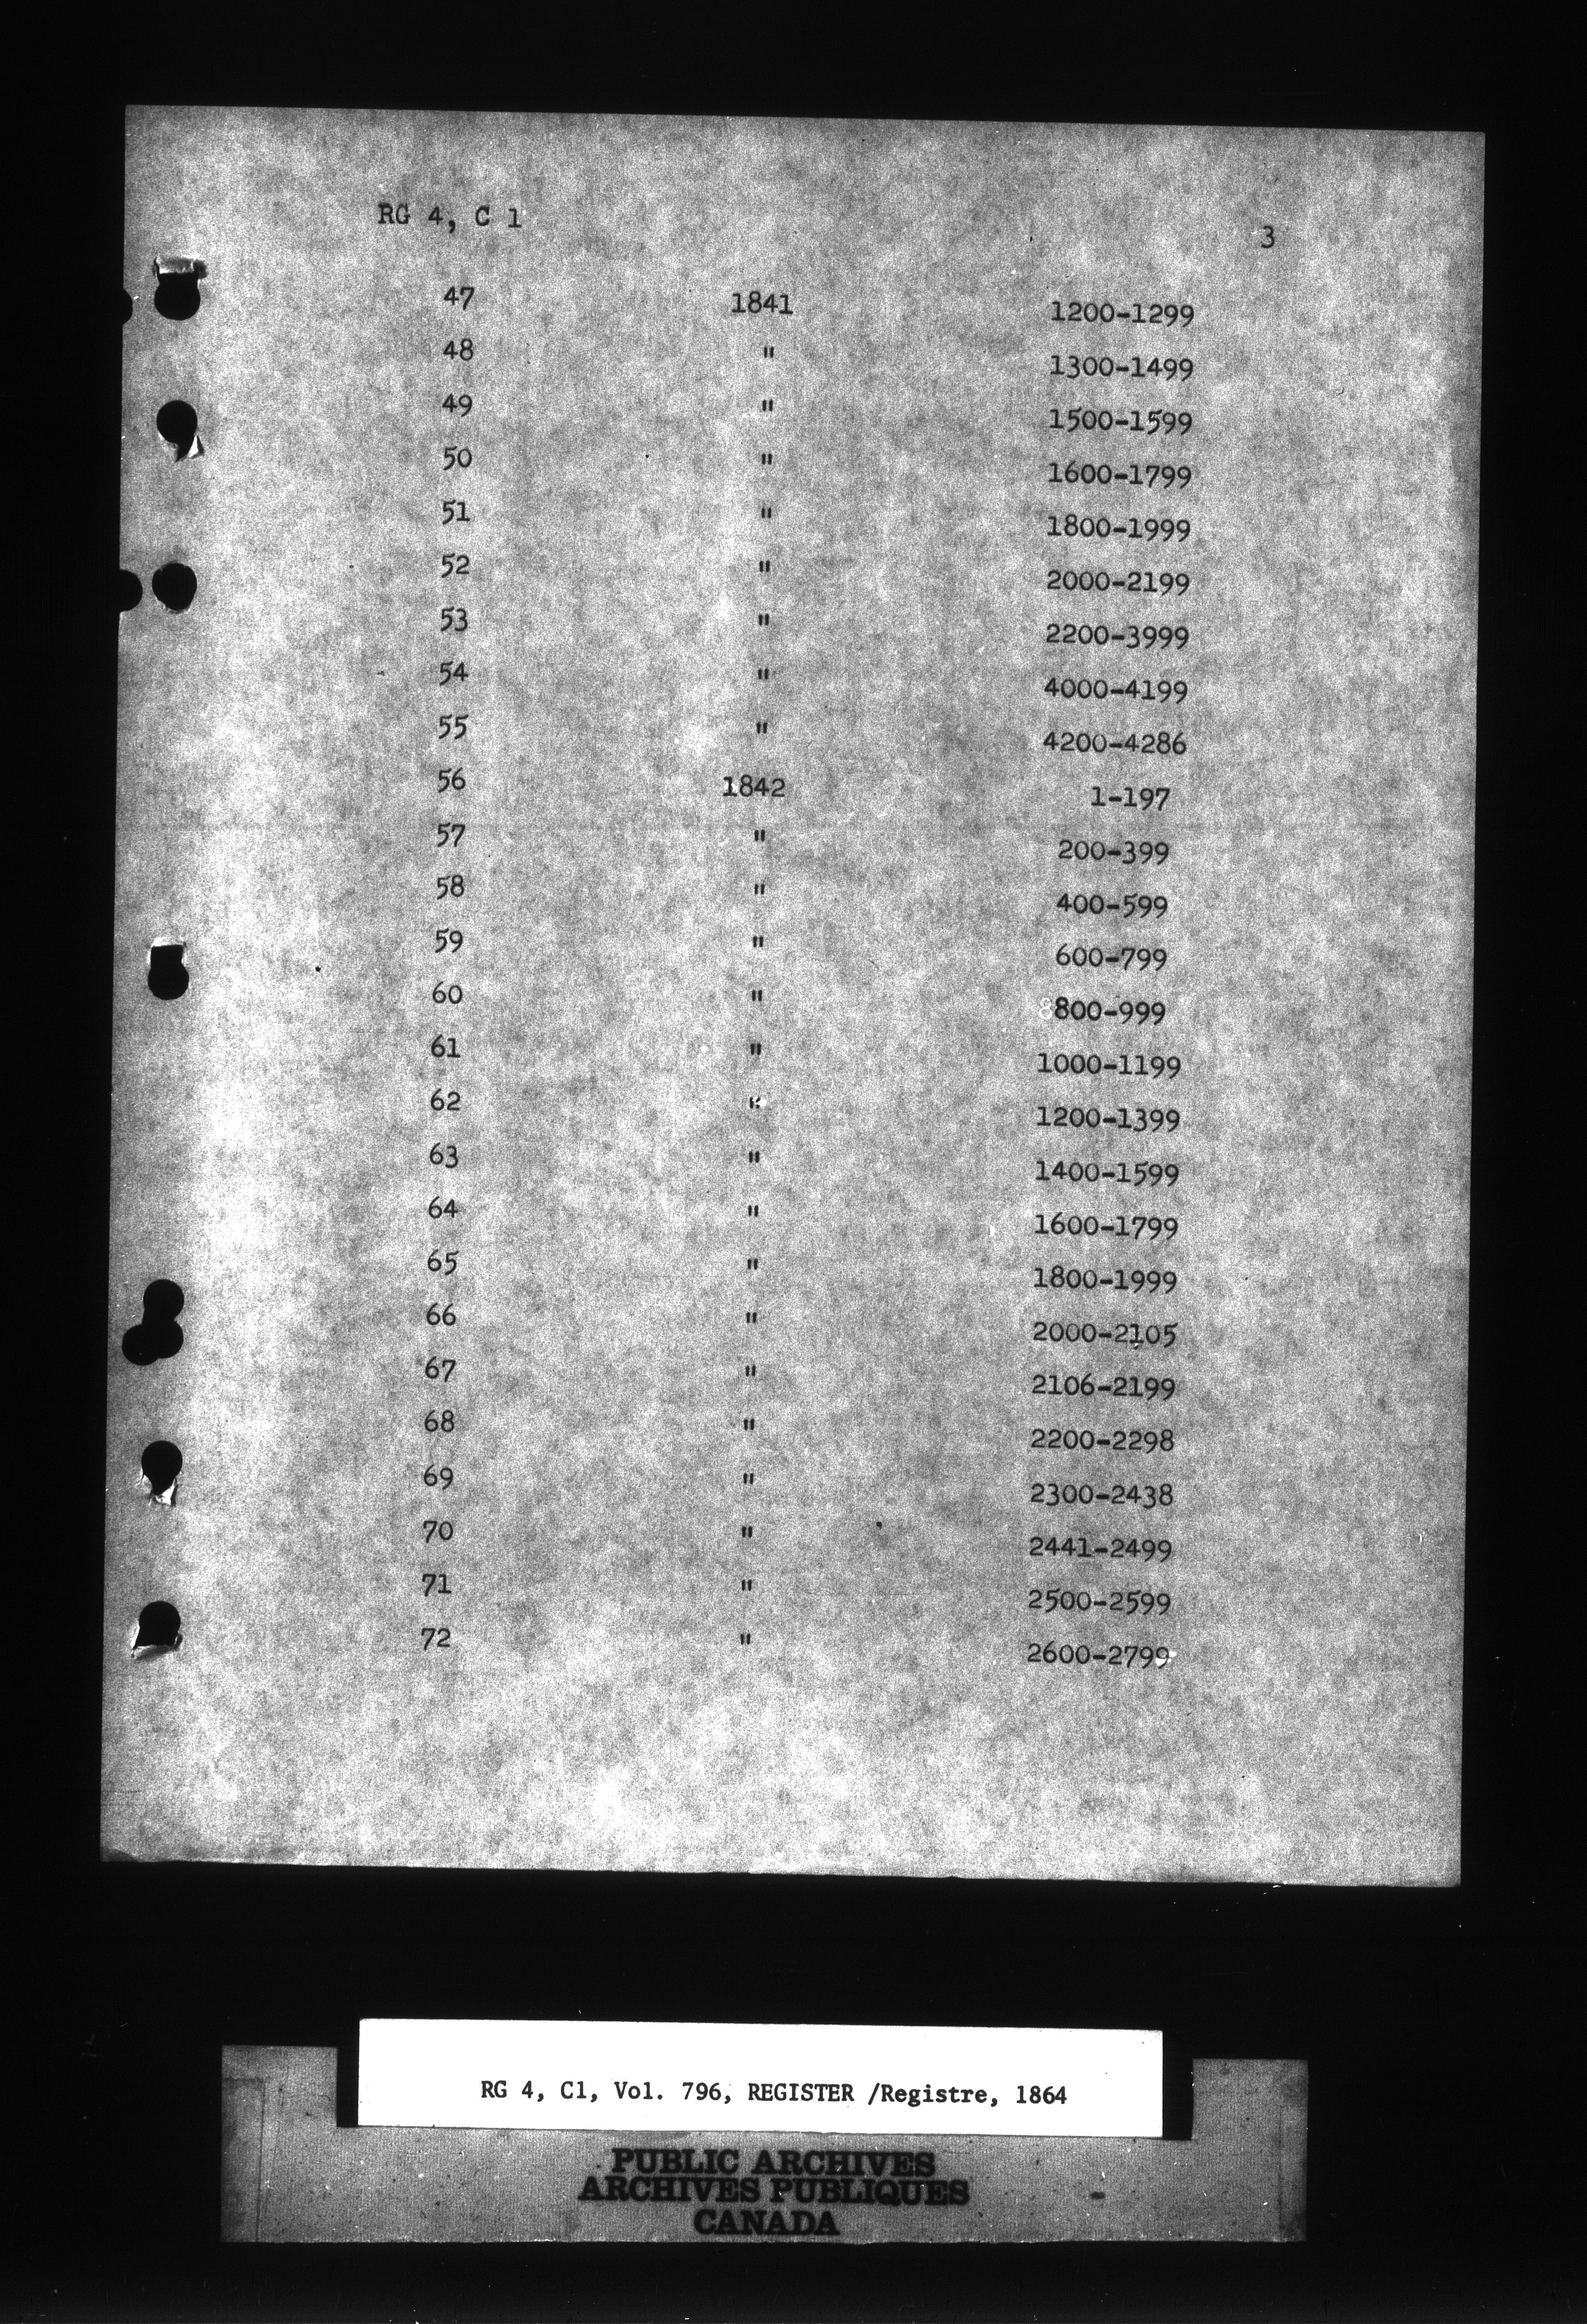 RG 4, C 1
3
47 1841 1200-1299
48 " 1300-1499
49 " 1500-1599
50 " 1600-1799
51 " 1800-1999
52 " 2000-2199
53 " 2200-3999
54 " 4000-4199
55 " 4200-4286
56 1842 1-197
57 " 200-399
58 " 400-599
59 " 600-799
60 " 800-999
61 " 1000-1199
62 " 1200-1399
63 " 1400-1599
64 " 1600-1799
65 " 1800-1999
66 " 2000-2105
67 " 2106-2199
68 " 2200-2298
69 " 2300-2438
70 " 2441-2499
71 " 2500-2599
72 " 2600-2799
RG 4, C1, Vol. 796, REGISTER /Registre, 1864
PUBLIC ARCHIVES
ARCHIVES PUBLIQUES
CANADA